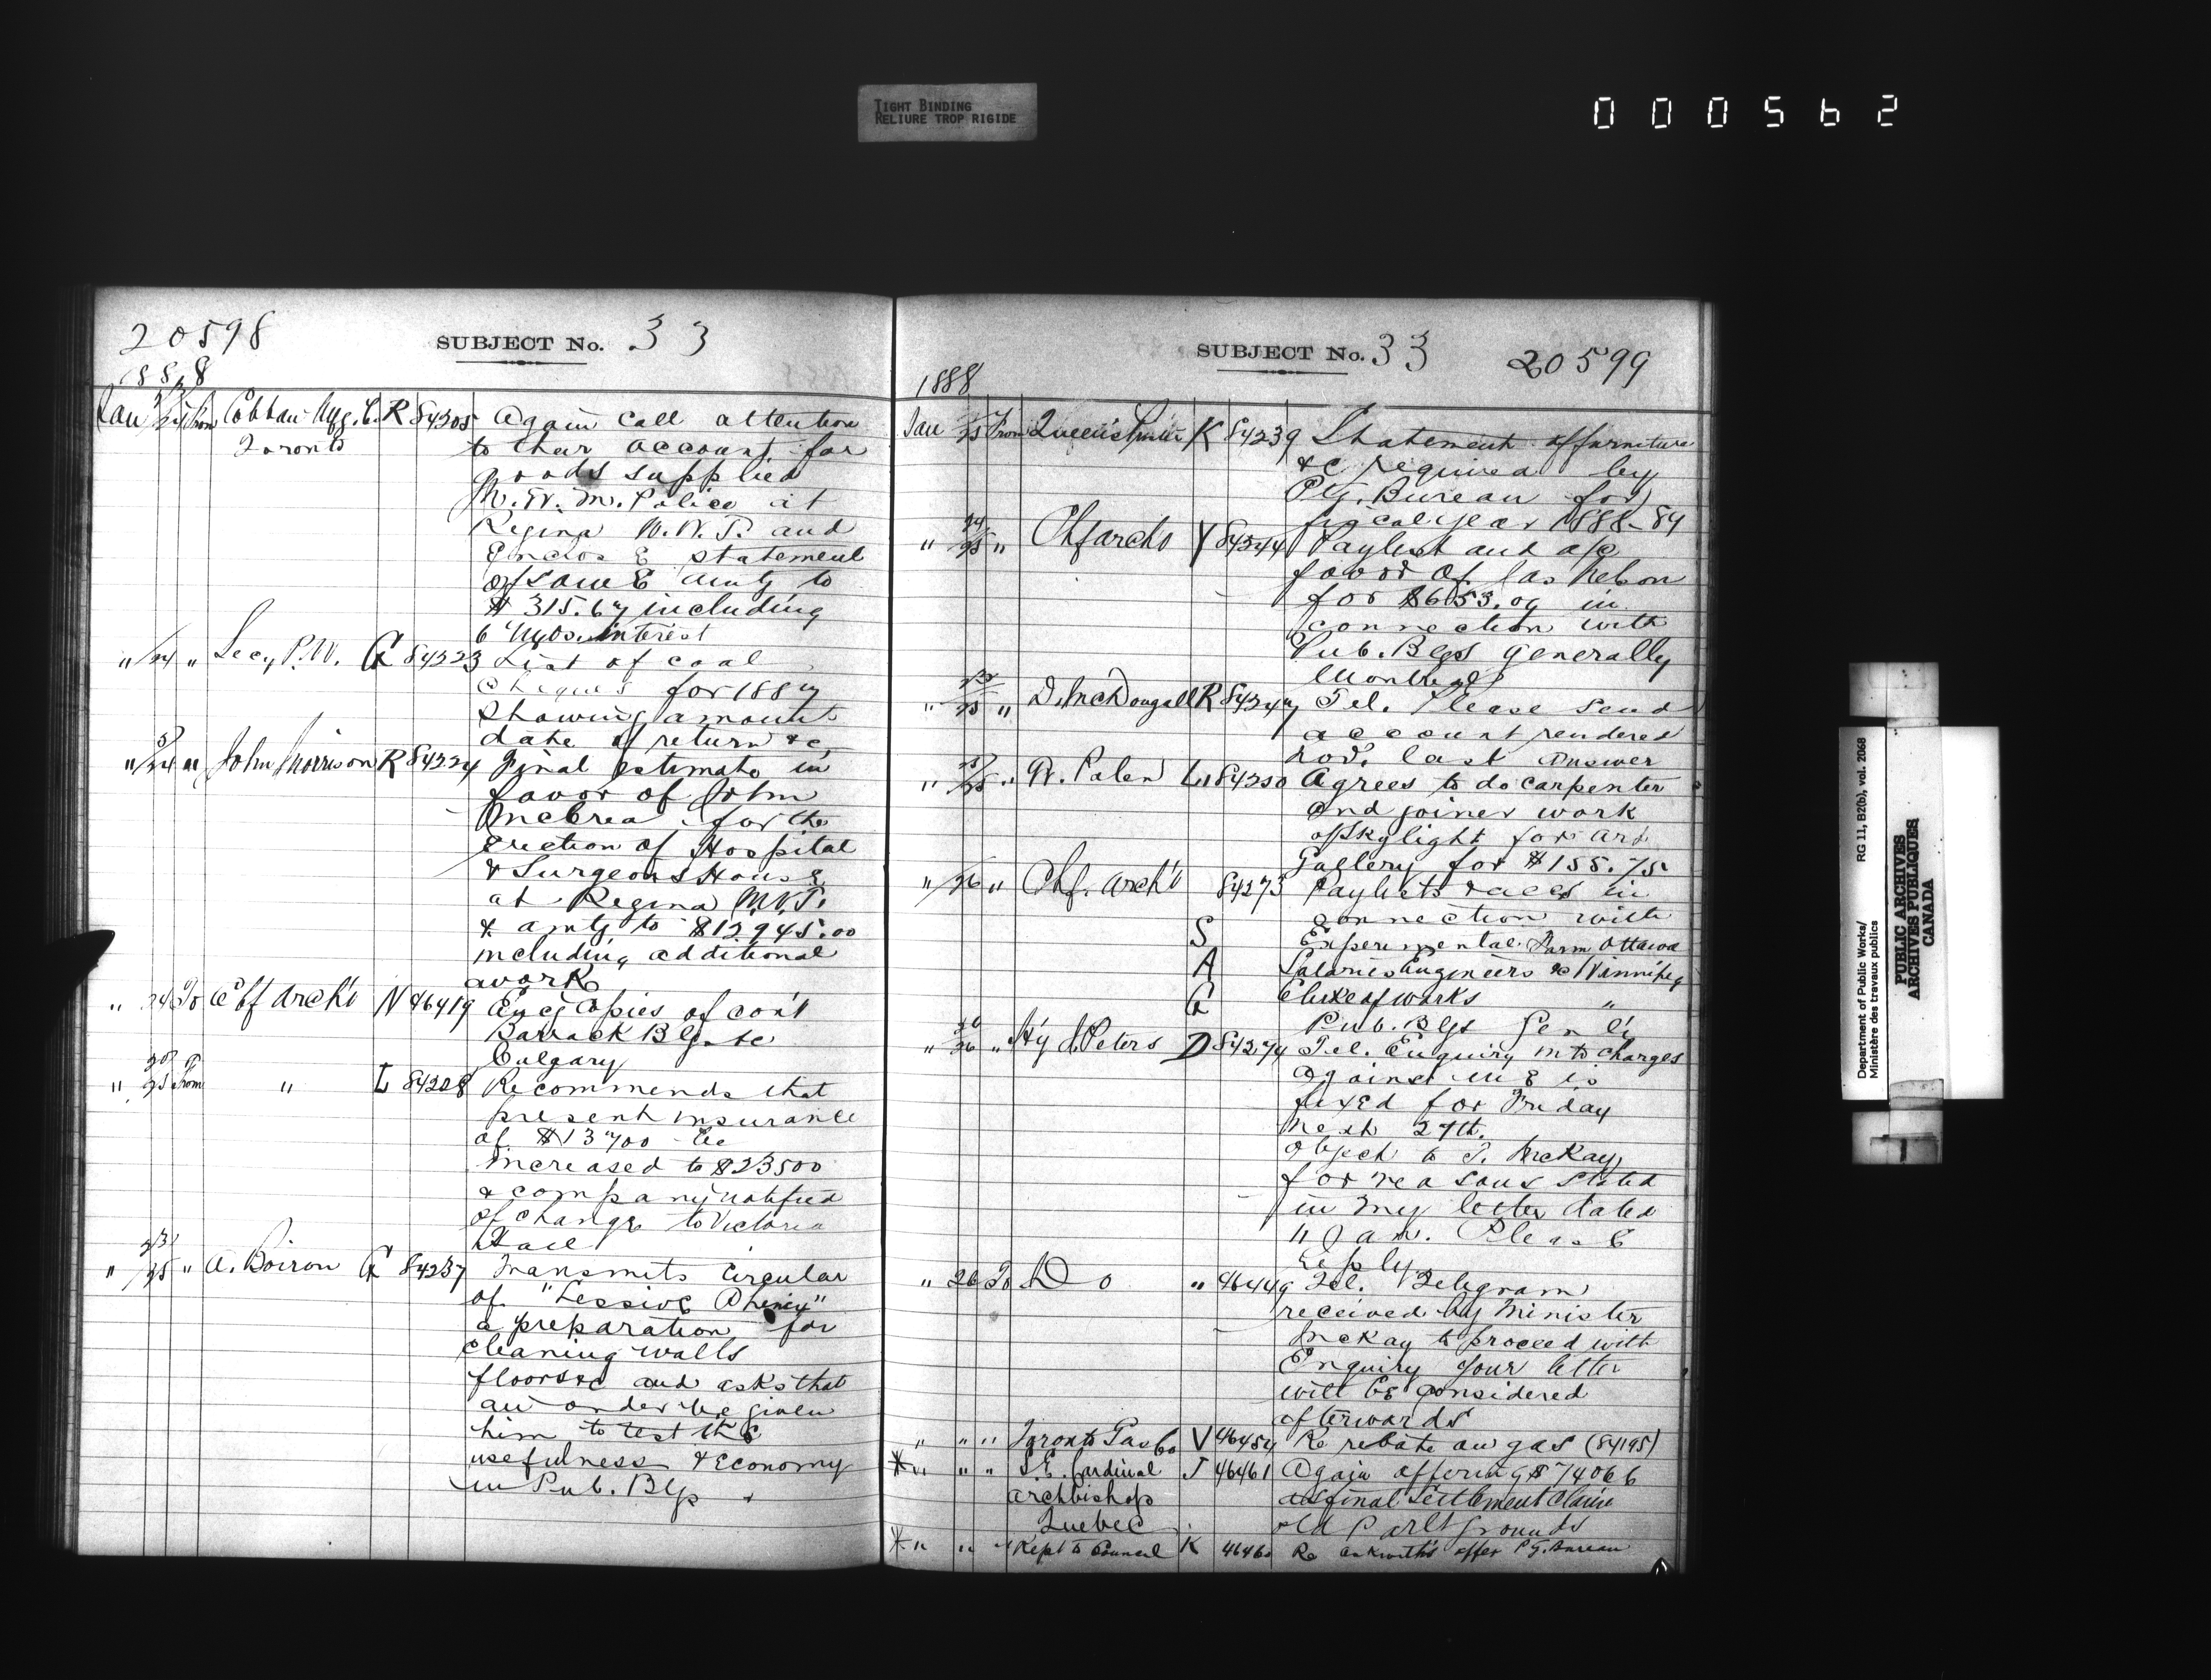 TIGHT BINDING
RELIURE TROP RIGIDE
000562
20598
SUBJECT No. 33
1888
Jan 24 From Cobban Mfg. Co. R 84205 Again call attention
Toronto to their account for
goods supplied
N. W. M. Police at
Regina N.W.T. and
Enclose statement
of same amtg to
$315.67 including
6 mos. interest
" 24 " Secy P.W. G 84223 List of coal
cheques for 1887
showing amount
date of return &c
" 24 " John Morrison R 84224 Final estimate in
favor of John
McCrea for the
Erection of Hospital
& Surgeons House
at Regina N.W.T.
& amtg to $12,945.00
including additional
work
" 24 To Chf Arch't N 46419 Encg Copies of con't
Barrack Blgs &c
Calgary
" 25 From " L 84208 Recommends that
present insurance
of $13700 be
increased to $23500
& company notified
of change to Victoria
Hall
" 23/25 " A. Boiron G 84237 Transmits Circular
of "Lessive Phenix"
a preparation for
cleaning walls
floors &c and asks that
an order be given
him to test the
usefulness & Economy
in Pub. Blgs
SUBJECT No. 33 20599
1888
Jan 25 From Queen's Printer K 84239 Statement of furniture
&c required by
Ptg. Bureau for
fiscal year 1888-89
" 24/25 " Chf arch't Y 84244 Paylist and a/c
favor of Jas Nelson
for $653.09 in
connection with
Pub. Blgs generally
Montreal
" 25 " D. McDougall R 84247 Tel. Please send
account rendered
Nov. last answer
" 25 " W. Palen L 84250 Agrees to do carpenter
and joiner work
of skylight for Art
Gallery for $155.75
" 26 " Chf. Arch't 84273 Paylists & accs in
connection with
S Experimental Farm Ottawa
A Salaries Engineers &c Winnipeg
G Clerk of works "
Pub. Blgs Gen'ly
" 26 " Hy J. Peters D 84274 Tel. Enquiry into charges
against me is
fixed for Friday
next 27th.
object to T. McKay
for reasons stated
in my letter dated
11 Jan. Please
reply
" 26 To Do " 46449 Tel. Telegram
received by Minister
McKay to proceed with
Enquiry your letter
will be considered
afterwards
" " " Toronto Gas Co V 46454 Re rebate on gas (84195)
* " " " S.E. Cardinal J 46461 Again offering $74066
Archbishop as final Settlement Claim
Quebec old Parlt grounds
* " " " Rept to Council K 46460 Re Askwith's offer Ptg. Bureau
Department of Public Works/
Ministère des travaux publics
RG 11, B2(b), vol. 2068
PUBLIC ARCHIVES
ARCHIVES PUBLIQUES
CANADA